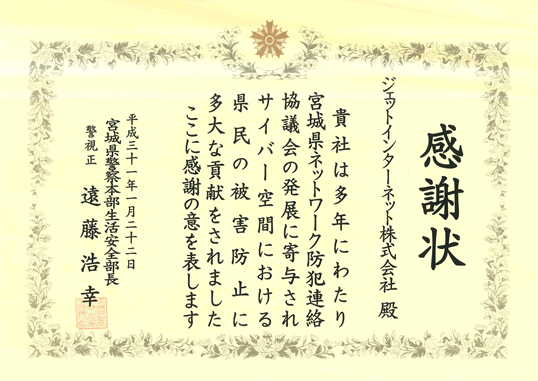 感謝状
ジェットインターネット株式会社 殿
貴社は多年にわたり
宮城県ネットワーク防犯連絡
協議会の発展に寄与され
サイバー空間における
県民の被害防止に
多大な貢献をされました
ここに感謝の意を表します
平成三十一年一月二十二日
宮城県警察本部生活安全部長
警視正 遠藤浩幸